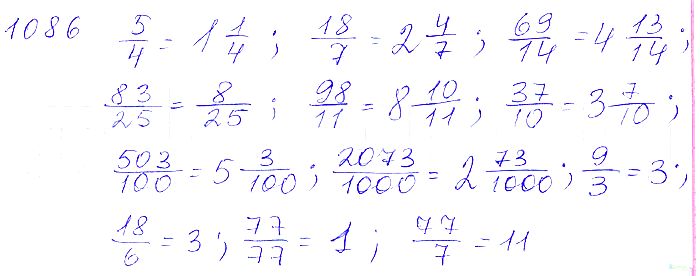 1086 5/4 = 1 1/4 ; 18/7 = 2 4/7 ; 69/14 = 4 13/14 ;
83/25 = 8/25 ; 98/11 = 8 10/11 ; 37/10 = 3 7/10 ;
503/100 = 5 3/100 ; 2073/1000 = 2 73/1000 ; 9/3 = 3 ;
18/6 = 3 ; 77/77 = 1 ; 77/7 = 11